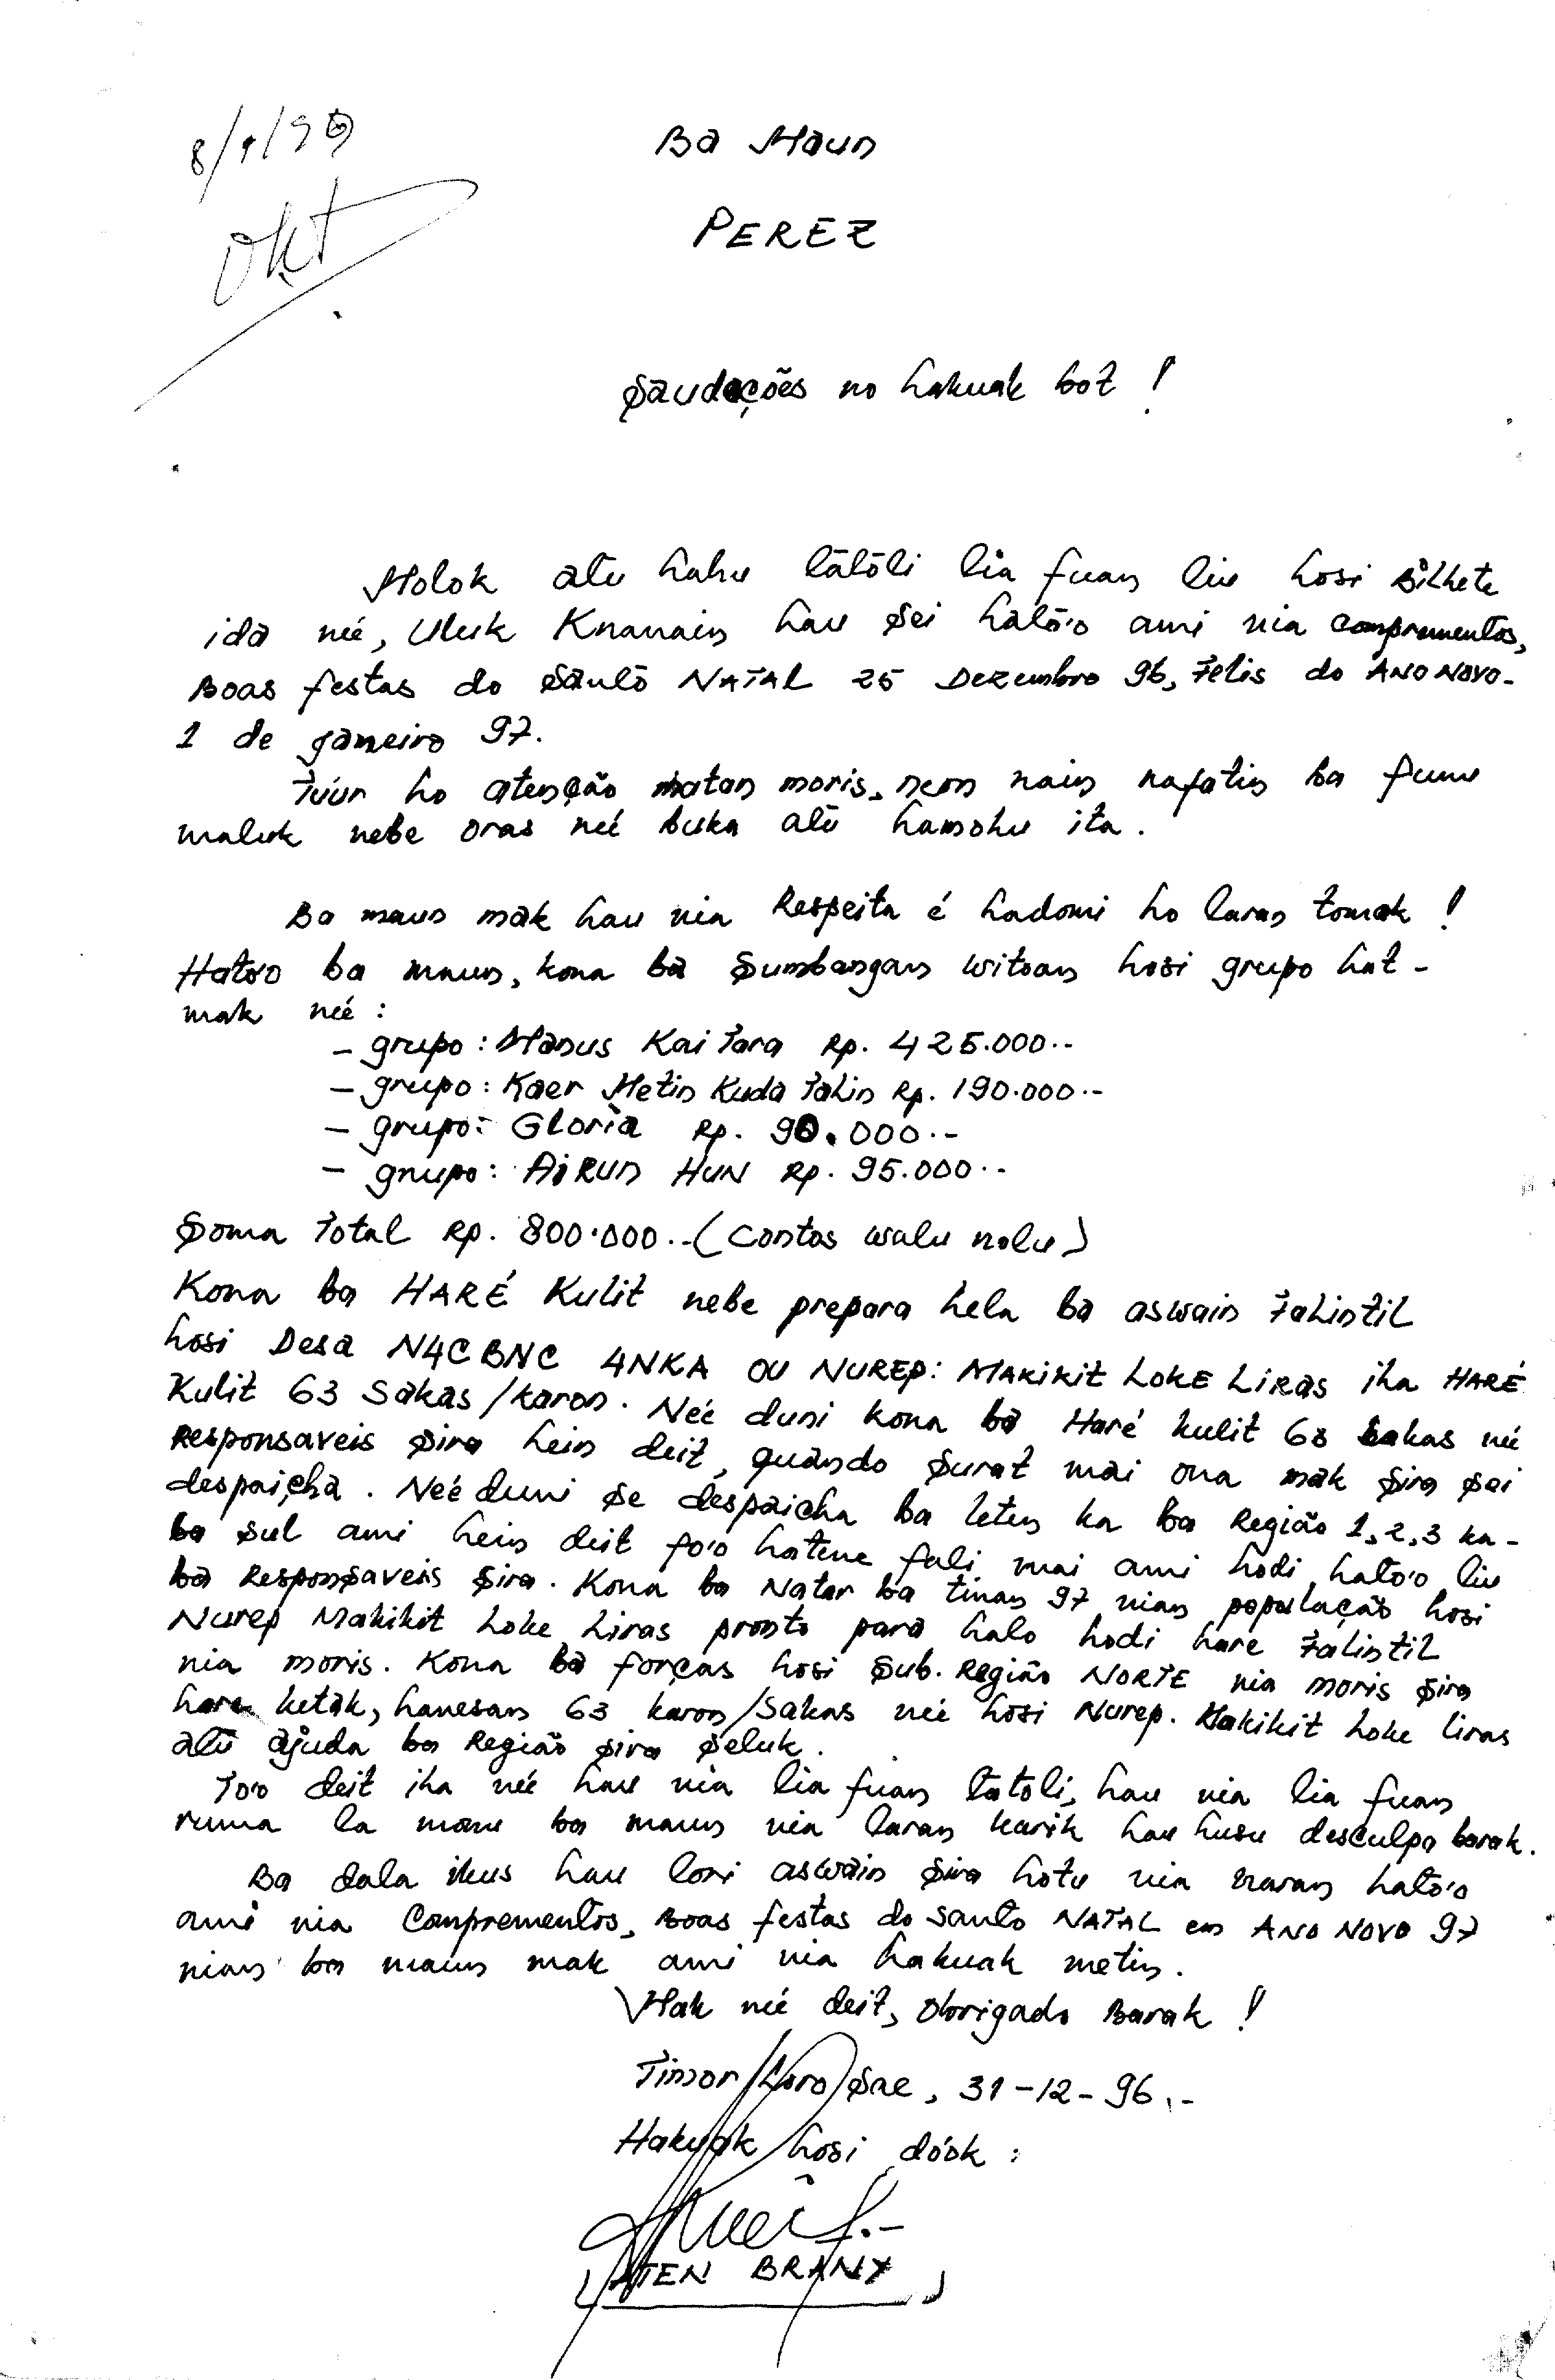 8/1/9
Okt
Ba Maun
PEREZ
Saudações no hakuak bot !
Molok atu hahu tatoli lia fuan liu hosi Bilhete
ida neé, Uluk Knanain hau sei hato'o ami nia comprementos,
Boas festas do Santo NATAL 25 Dezembro 96, Felis do ANO NOVO-
1 de janeiro 97.
Túur ho atenção matan moris, neon nain nafatin ba funu
maluk nebe oras neé buka atu hamohu ita.
Ba maun mak hau nia Respeita é hadomi ho laran tomak !
Hato'o ba maun, kona ba Sumbangan witoan hosi grupo hat-
mak neé :
- grupo : Manus Kai Tara Rp. 425.000.-
- grupo : Kaer Metin Kuda Talin Rp. 190.000.-
- grupo : Gloria Rp. 90.000.-
- grupo : Ai RUN HUN Rp. 95.000.-
Soma Total Rp. 800.000.-(Contos walu nolu)
Kona ba HARÉ Kulit nebe prepara hela ba aswain Falintil
hosi Desa N4CBNC 4NKA OU NUREP: MAKIKIT LOKE LIRAS iha HARÉ
Kulit 63 Sakas/karon. Neé duni kona ba Haré kulit 63 sakas neé
Responsaveis sira hein deit, quando surat mai ona mak sira sei
despaicha. Neé duni se despaicha ba leten ka ba Região 1,2,3 ka-
ba sul ami hein deit fo'o hatene fali mai ami hodi hato'o liu
ba Responsaveis sira. Kona ba Natar ba tinan 97 nian população hosi
Nurep Makikit Loke Liras pronto para halo hodi hare Falintil
nia moris. Kona ba forças hosi Sub. Região NORTE nia moris sira
hare ketak, hanesan 63 karon/Sakas neé hosi Nurep. Makikit Loke liras
atu ajuda ba Região sira seluk.
To'o deit iha neé hau nia lia fuan tatoli, hau nia lia fuan
ruma la monu ba maun nia laran karik hau husu desculpa barak.
Ba dala ikus hau lori aswain sira hotu nia naran hato'o
ami nia Comprementos, Boas festas do Santo NATAL en ANO NOVO 97
nian ba maun mak ami nia hakuak metin.
Mak neé deit, Obrigado Barak !
Timor Loro Sae, 31-12-96.-
Hakuak hosi dóok :
ATEN BRANY